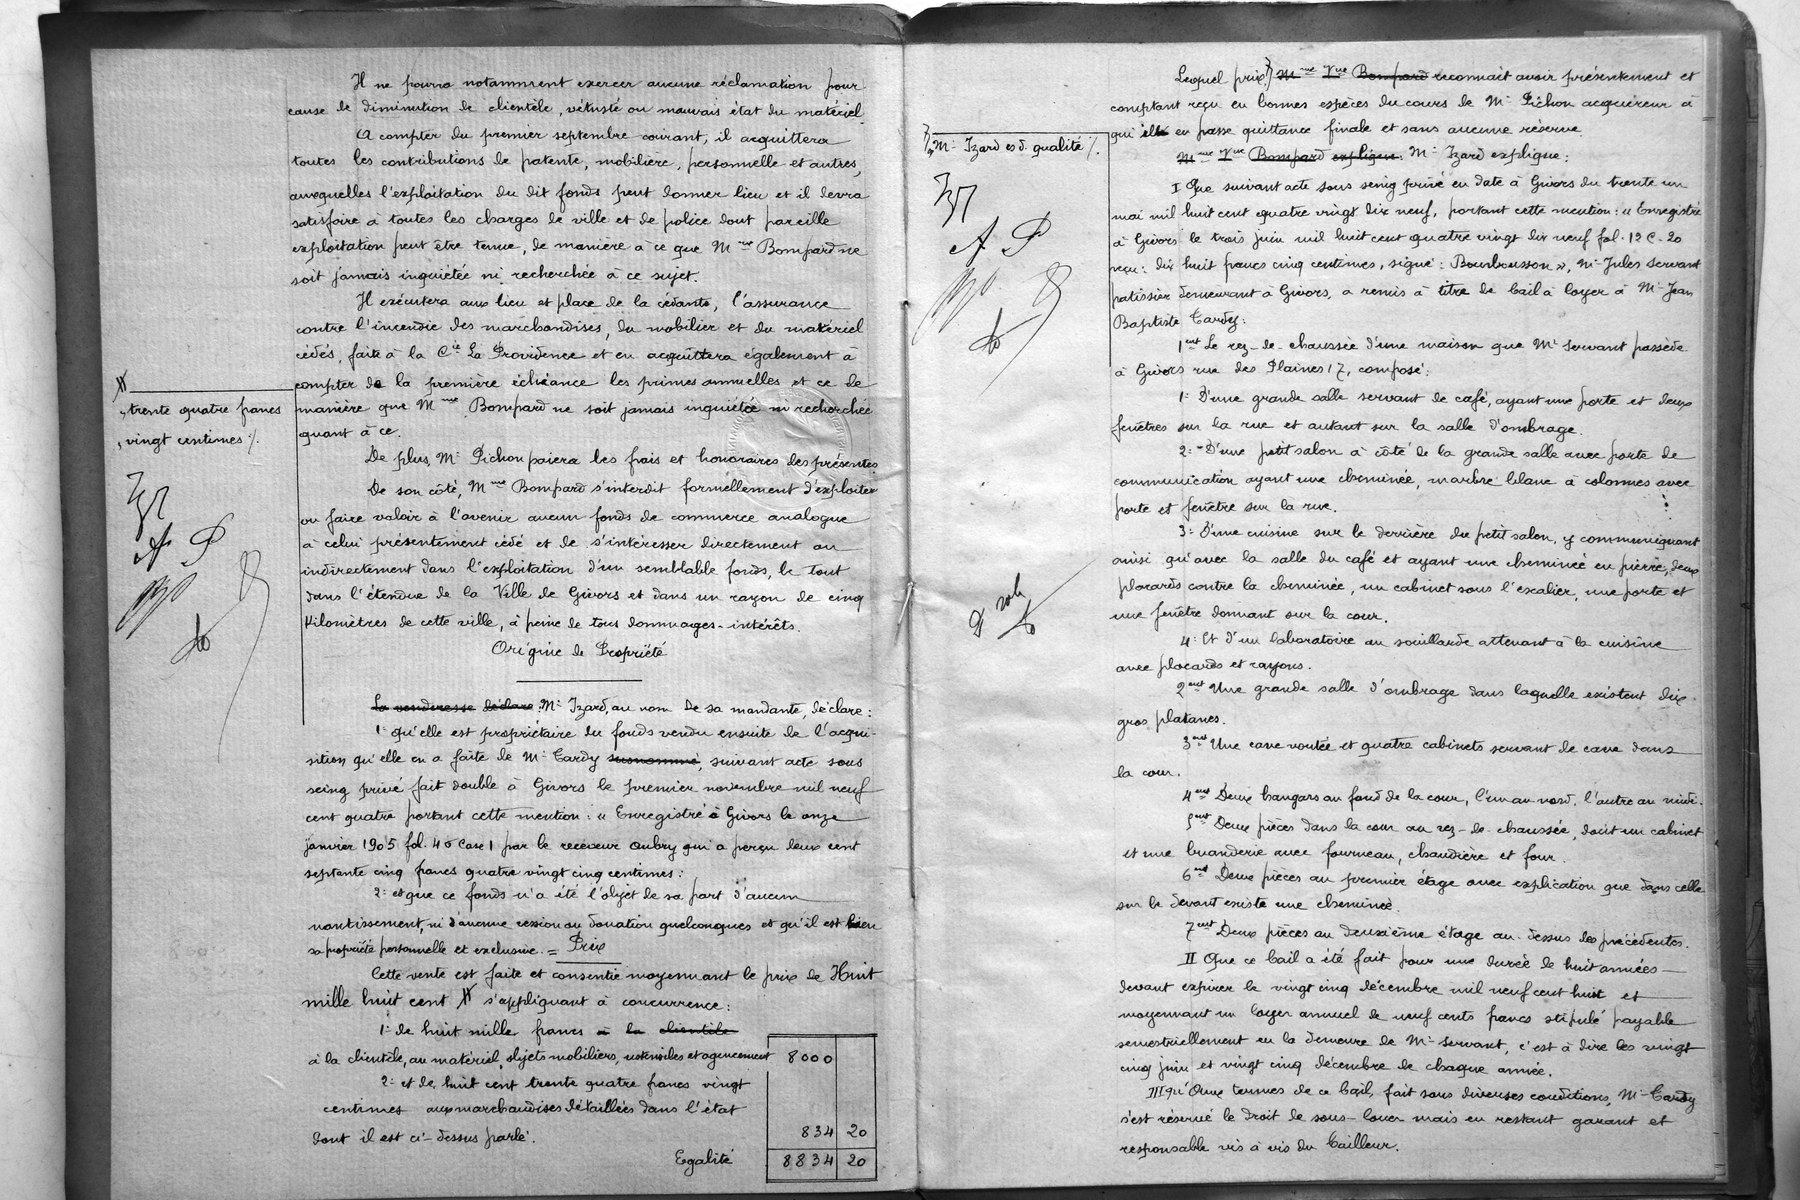 Il ne pourra notamment exercer aucune réclamation pour
cause de diminution de clientèle, vétusté ou mauvais état du matériel.
A compter du premier septembre courant, il acquittera
toutes les contributions de patente, mobilière, personnelle et autres,
auxquelles l'exploitation du dit fonds peut donner lieu et il devra
satisfaire à toutes les charges de ville et de police dont pareille
exploitation peut être tenue, de manière à ce que Mme Bompard ne
soit jamais inquiétée ni recherchée à ce sujet.
Il exécutera aux lieu et place de la cédante, l'assurance
contre l'incendie des marchandises, du mobilier et du matériel
cédés, faite à la Cie La Providence et en acquittera également à
compter de la première échéance les primes annuelles et ce de
manière que Mme Bompard ne soit jamais inquiétée ni recherchée
quant à ce.
De plus, Mr Pichon paiera les frais et honoraires des présentes
De son côté, Mme Bompard s'interdit formellement d'exploiter
ou faire valoir à l'avenir aucun fonds de commerce analogue
à celui présentement cédé et de s'intéresser directement ou
indirectement dans l'exploitation d'un semblable fonds, le tout
dans l'étendue de la Ville de Givors et dans un rayon de cinq
kilomètres de cette ville, à peine de tous dommages-intérêts.
Origine de Propriété
La venderesse déclare: Mr Izard, au nom de sa mandante, déclare:
1° qu'elle est propriétaire du fonds vendu ensuite de l'acqui-
sition qu'elle en a faite de Mr Tardy susnommé, suivant acte sous
seing privé fait double à Givors le premier novembre mil neuf
cent quatre portant cette mention: "Enregistré à Givors le onze
janvier 1905 fol. 40 Case 1 par le receveur Aubry qui a perçu deux cent
septante cinq francs quatre vingt cinq centimes:
2° et que ce fonds n'a été l'objet de sa part d'aucun
nantissement, ni d'aucune cession ou donation quelconques et qu'il est bien
sa propriété personnelle et exclusive. = Prix
Cette vente est faite et consentie moyennant le prix de Huit
mille huit cent # s'appliquant à concurrence:
1° de huit mille francs à la clientèle
à la clientèle, au matériel, objets mobiliers, ustensiles et agencement 8000
2° et de huit cent trente quatre francs vingt
centimes aux marchandises détaillées dans l'état
dont il est ci-dessus parlé. 834 20
Egalité 8834 20
#
trente quatre francs
vingt centimes ./.
A P
Lequel prix Mme Vve Bompard reconnait avoir présentement et
comptant reçu en bonnes espèces du cours de Mr Pichon acquéreur à
qui elle en passe quittance finale et sans aucune réserve
Mme Vve Bompard explique: Mr Izard explique:
I Que suivant acte sous seing privé en date à Givors du trente un
mai mil huit cent quatre vingt dix neuf, portant cette mention: "Enregistré
à Givors le trois juin mil huit cent quatre vingt dix neuf fol. 12 C. 20
reçu: dix huit francs cinq centimes, signé: Bourbousson", Mr Jules Servant
patissier demeurant à Givors, a remis à titre de bail à loyer à Mr Jean
Baptiste Tardy:
1ent Le rez-de-chaussée d'une maison que Mr Servant possède
à Givors rue des Plaines 17, composé:
1° D'une grande salle servant de café, ayant une porte et deux
fenêtres sur la rue et autant sur la salle d'ombrage.
2° D'une petit salon à côté de la grande salle avec porte de
communication ayant une cheminée, marbre blanc à colonnes avec
porte et fenêtre sur la rue.
3° D'une cuisine sur le derrière du petit salon, y communiquant
ainsi qu'avec la salle du café et ayant une cheminée en pierre, deux
placards contre la cheminée, un cabinet sous l'escalier, une porte et
une fenêtre donnant sur la cour.
4° Et d'un laboratoire ou souillarde attenant à la cuisine
avec placards et rayons.
2ent Une grande salle d'ombrage dans laquelle existent dix
gros platanes.
3ent Une cave voutée et quatre cabinets servant de cave dans
la cour.
4ent Deux hangars au fond de la cour, l'un au nord, l'autre au midi.
5ent Deux pièces dans la cour au rez-de-chaussée, doit un cabinet
et une buanderie avec fourneau, chaudière et four.
6ent Deux pièces au premier étage avec explication que dans celle
sur le devant existe une cheminée.
7ent Deux pièces au deuxième étage au-dessus des précédentes.
II Que ce bail a été fait pour une durée de huit années
devant expirer le vingt cinq décembre mil neuf cent huit et
moyennant un loyer annuel de neuf cents francs stipulé payable
semestriellement en la demeure de Mr Servant, c'est à dire les vingt
cinq juin et vingt cinq décembre de chaque année.
III Qu'aux termes de ce bail, fait sous diverses conditions, Mr Tardy
s'est réservé le droit de sous-louer mais en restant garant et
responsable vis à vis du bailleur.
Mr Izard es d. qualité ./.
A P